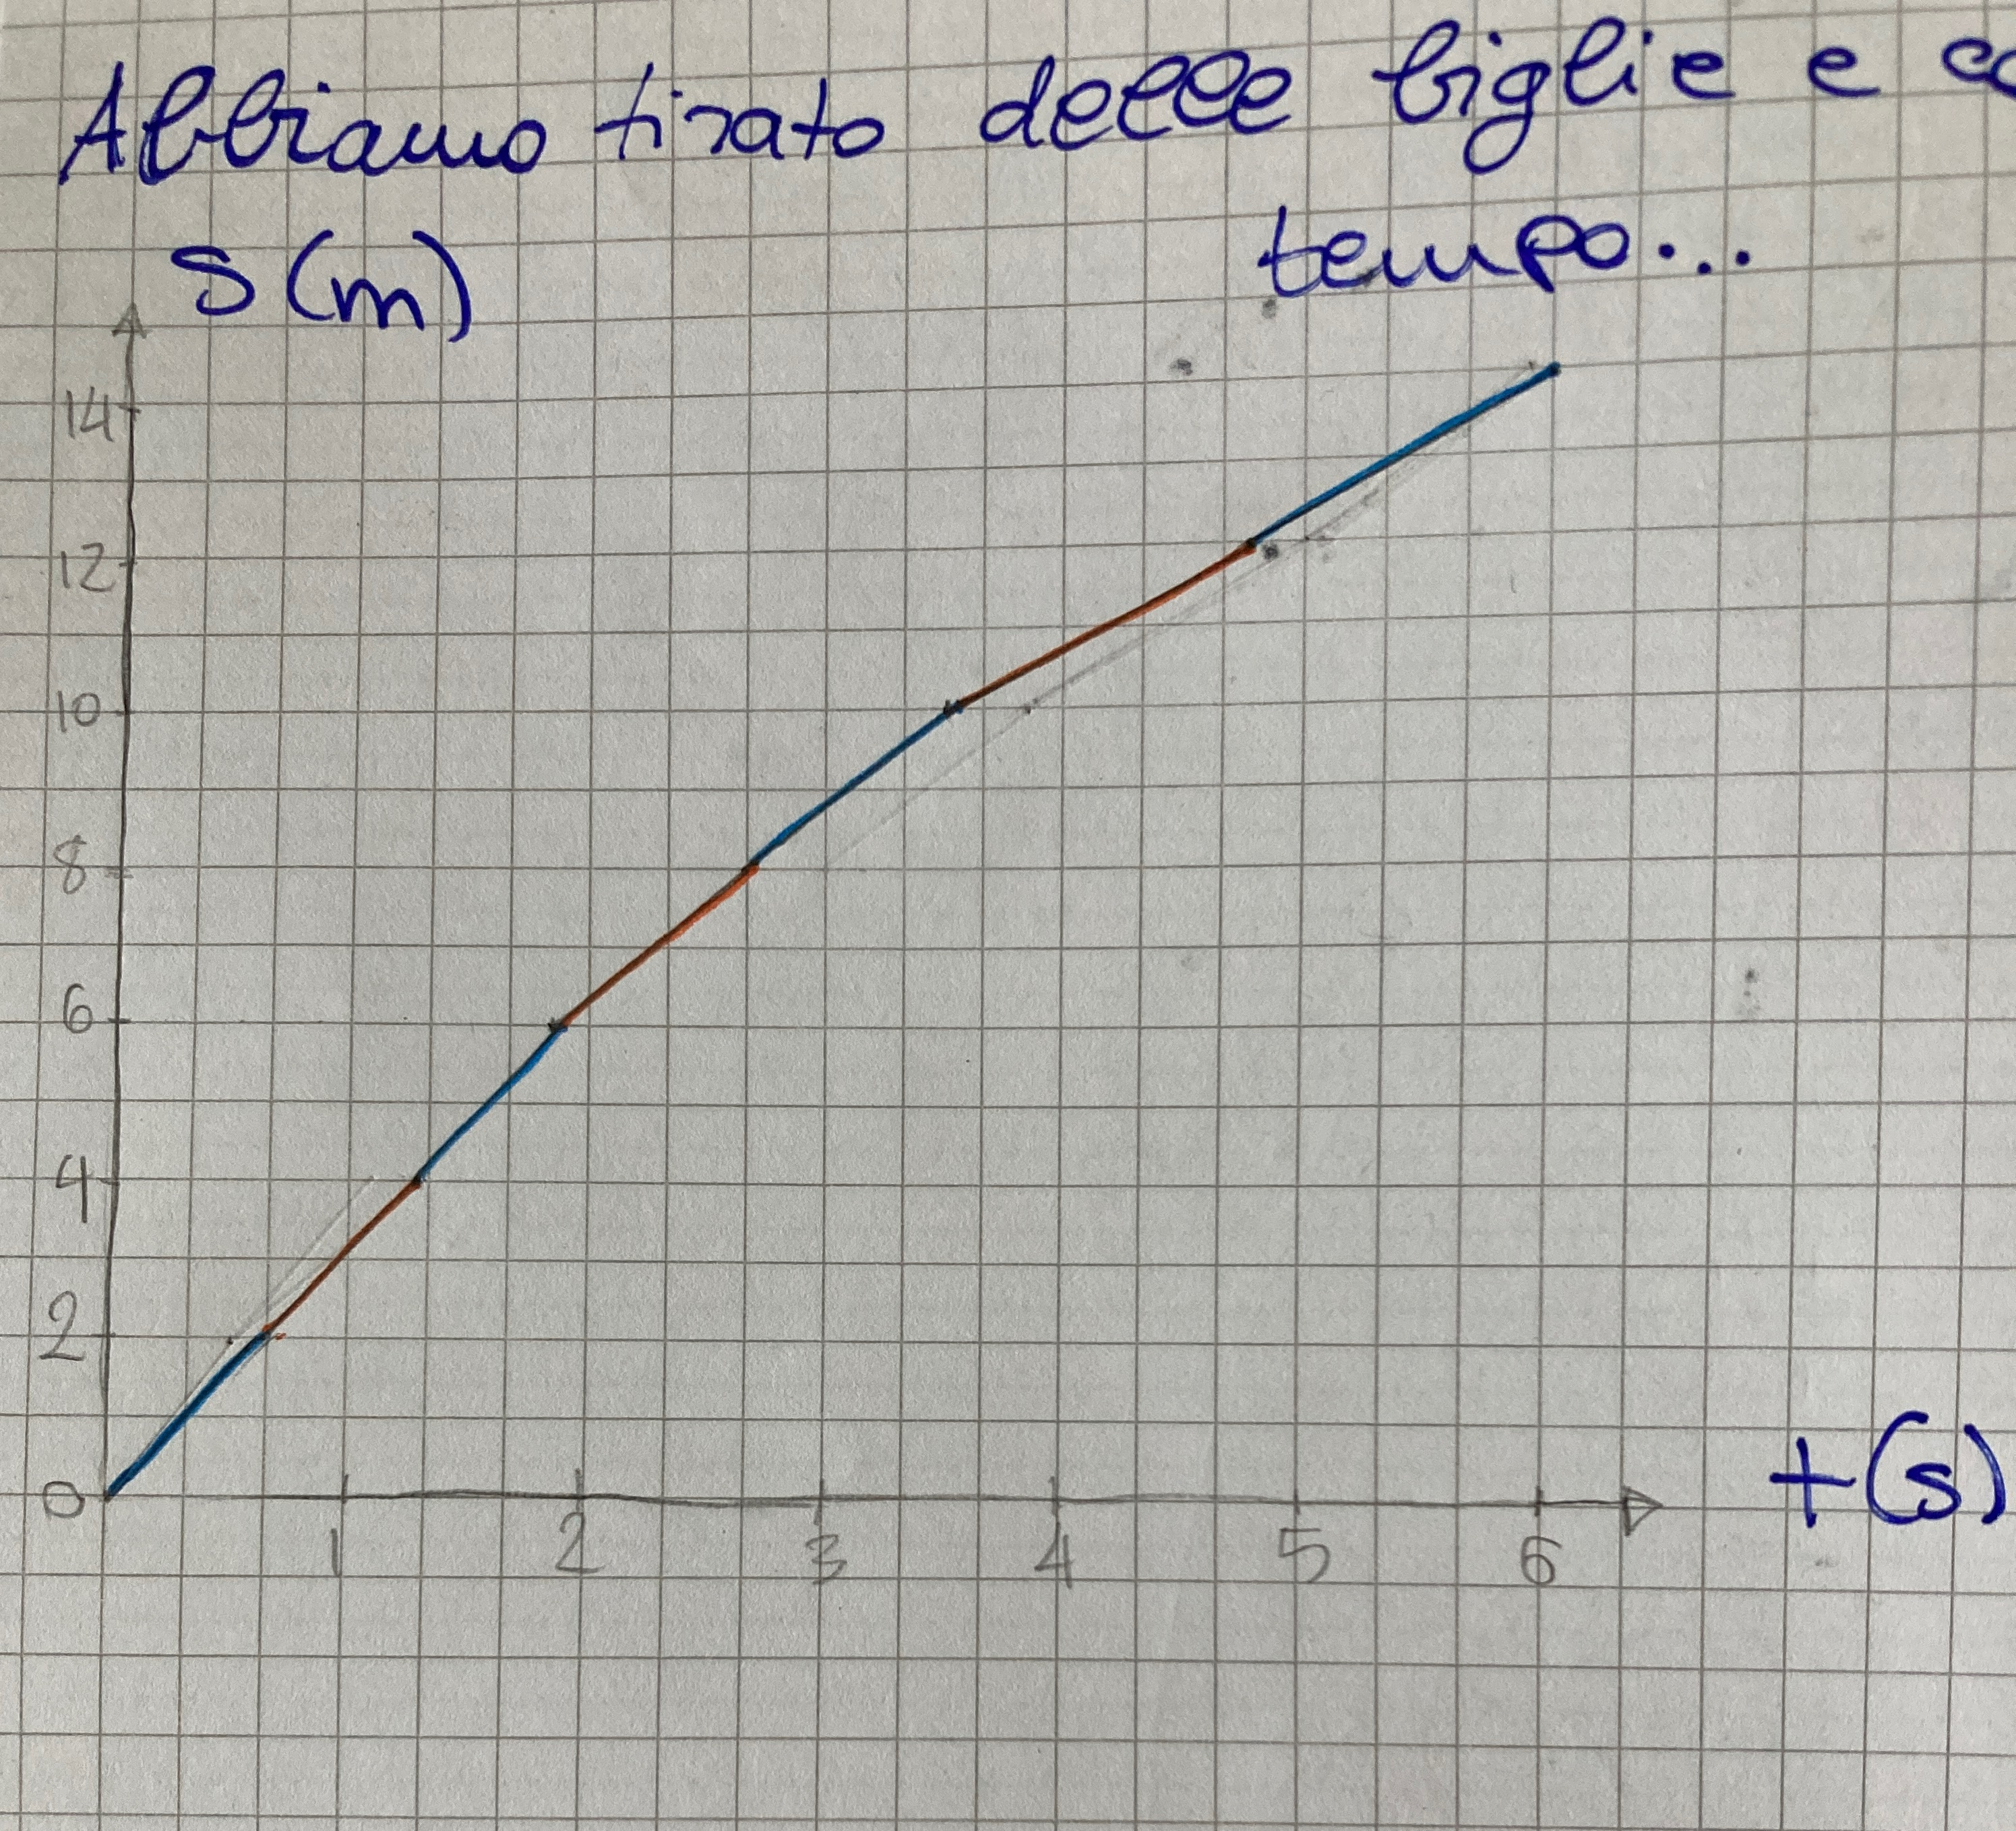 Abbiamo tirato delle biglie e
tempo...
s(m)
14
12
10
8
6
4
2
0
1 2 3 4 5 6
t(s)